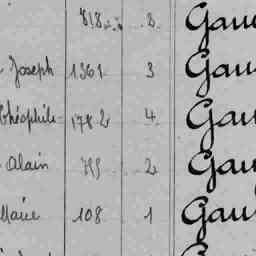 8 Gau
Joseph 1361 3 Gau
Théophile 1782 4 Gau
Alain 795 2 Gau
Marie 108 1 Gau